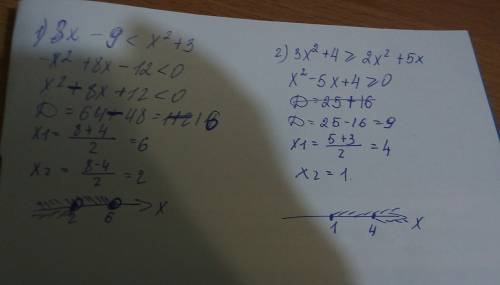 1) 8x - 9 < x² + 3
-x² + 8x - 12 < 0
x² - 8x + 12 < 0
D = 64 - 48 = 16
x1 = (8+4)/2 = 6
x2 = (8-4)/2 = 2
2 6 x
2) 3x² + 4 ≥ 2x² + 5x
x² - 5x + 4 ≥ 0
D = 25 + 16
D = 25 - 16 = 9
x1 = (5+3)/2 = 4
x2 = 1.
1 4 x